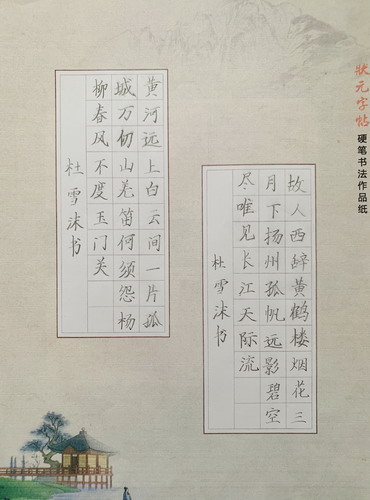 狀元字帖 硬笔书法作品纸
故人西辞黄鹤楼烟花三
月下扬州孤帆远影碧空
尽唯见长江天际流
杜雪沫书
黄河远上白云间一片孤
城万仞山羌笛何须怨杨
柳春风不度玉门关
杜雪沫书